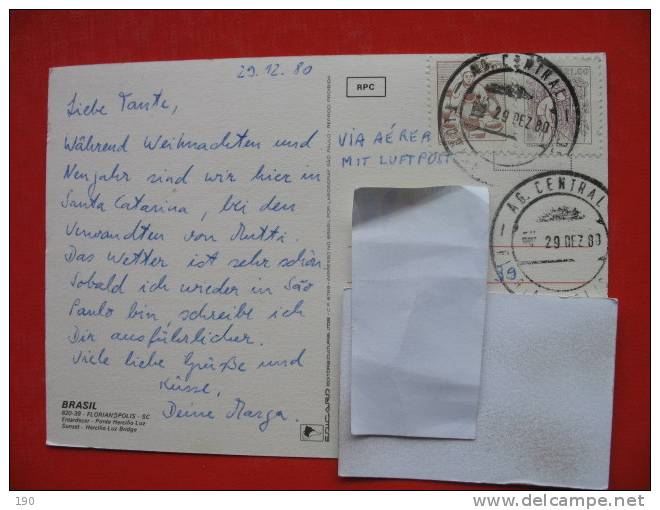 29.12.80
Liebe Tante,
Während Weihnachten und
Neujahr sind wir hier in
Santa Catarina, bei den
Verwandten von Mutti.
Das Wetter ist sehr schön
Sobald ich wieder in São
Paulo bin, schreibe ich
Dir ausführlicher.
Viele liebe Grüße und
Küsse,
Deine Marga.
RPC
VIA AÉREA
MIT LUFTPOST
AG. CENTRAL
29 DEZ 80
AG. CENTRAL
29 DEZ 80
39
BRASIL
820-39 - FLORIANÓPOLIS - SC
Entardecer - Ponte Hercílio Luz
Sunset - Hercílio Luz Bridge
190
www.delcampe.net